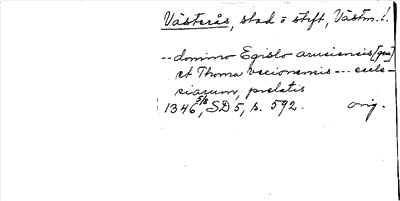 Västerås, stad o stift, Västm. l.
-- domino Egislo arusiensis [gen]
et Thoma vecionensis --- eccle-
siarum, prelatis
1346 5/8, SD 5, s. 592. orig.